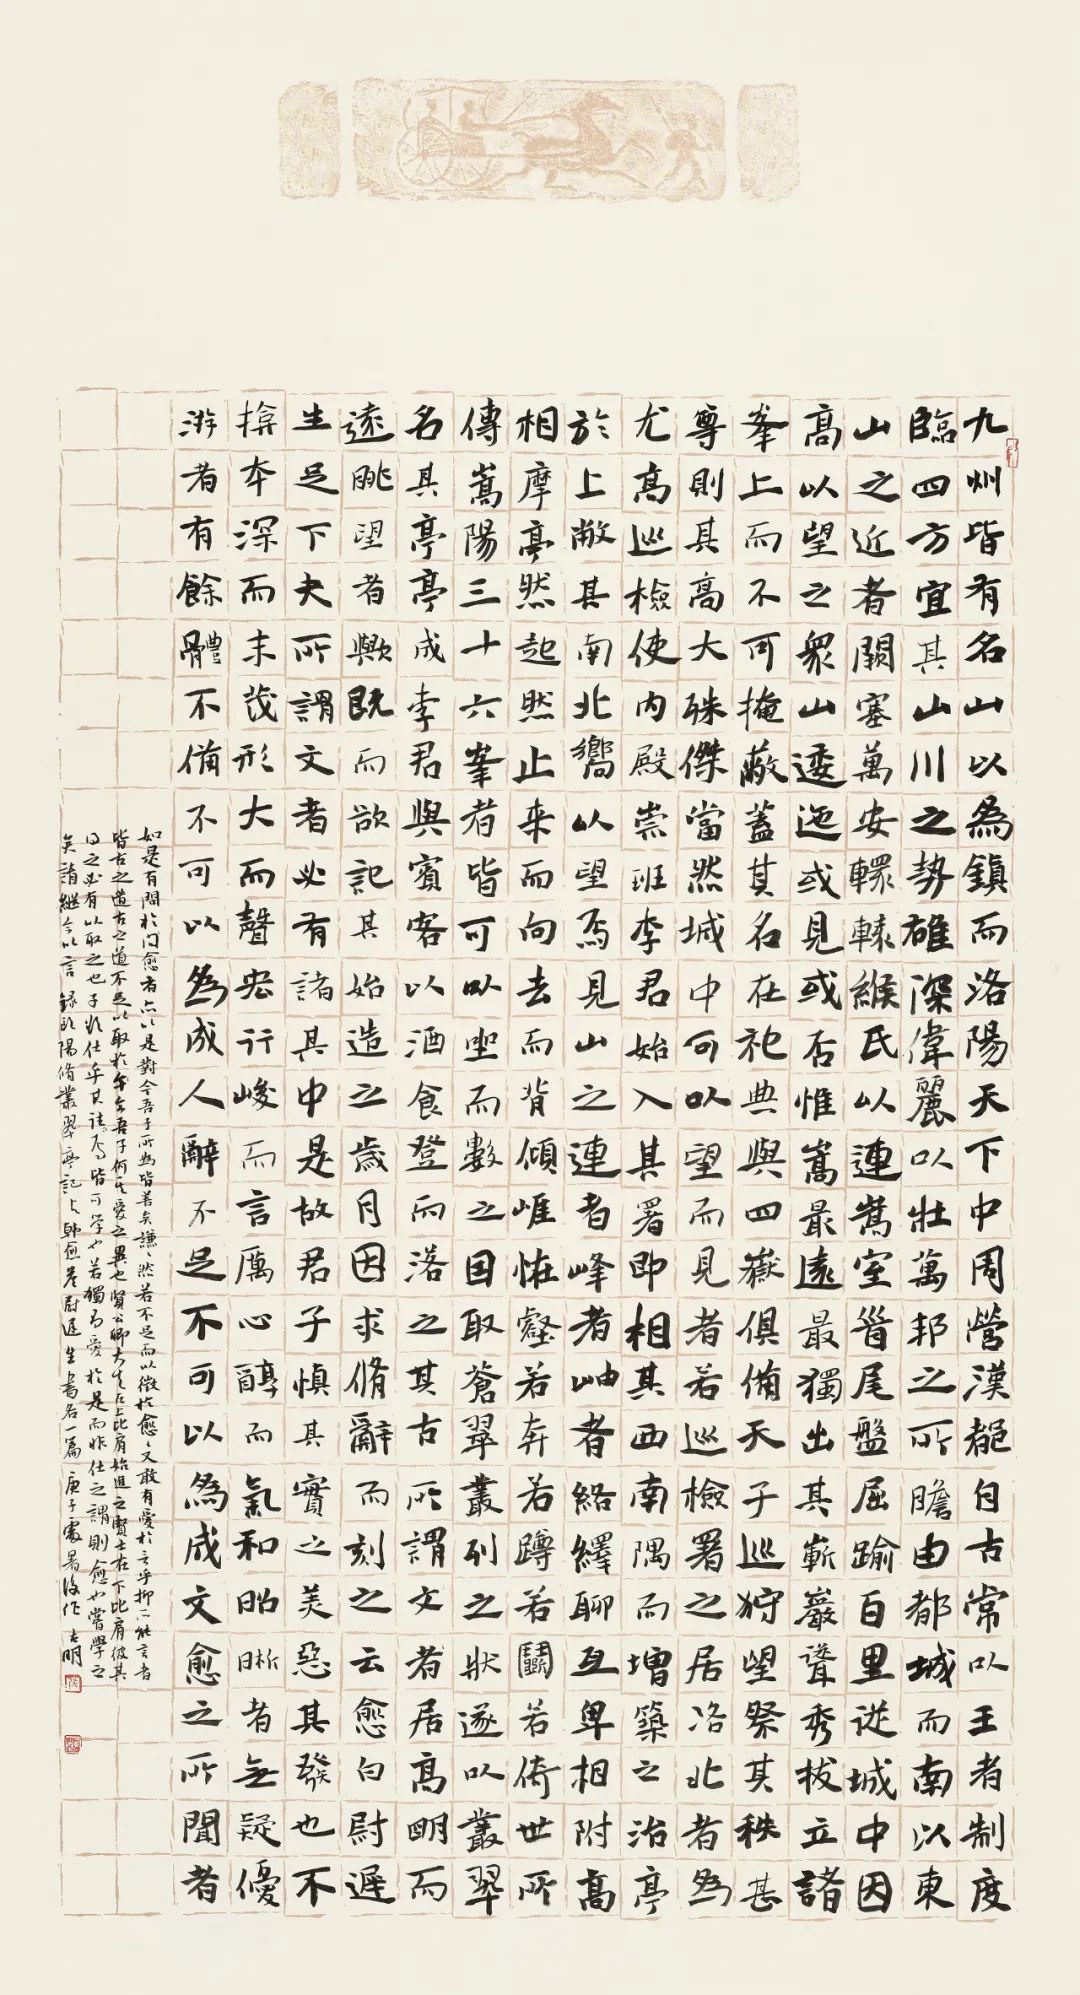 九州皆有名山以為鎮而洛陽天下中周營漢都自古常以王者制度
臨四方宜其山川之勢雄深偉麗以壯萬邦之所瞻由都城而南以東
山之近者闕塞萬安轘轅緱氏以連嵩室首尾盤屈踰百里從城中因
高以望之衆山逶迤或見或否惟嵩最遠最獨出其嶄巖聳秀拔立諸
峯上而不可掩蔽蓋其名在祀典與四嶽俱備天子巡狩望祭其秩甚
尊則其高大殊傑當然城中可以望而見者若巡檢署之居洛北者為
尤高巡檢使内殿崇班李君始入其署即相其西南隅而增築之治亭
於上敞其南北嚮以望焉見山之連者峰者岫者絡繹聊亙卑相附高
相摩亭然起然止来而向去而背傾崕怪壑若奔若蹲若鬭若倚世所
傳嵩陽三十六峯者皆可以坐而數之因取蒼翠叢列之狀遂以叢翠
名其亭亭成李君與賓客以酒食登而落之其古所謂文者居高明而
遠眺望者歟既而欲記其始造之歲月因求脩辭而刻之云愈白尉遲
生足下夫所謂文者必有諸其中是故君子慎其實之美惡其發也不
揜本深而末茂形大而聲宏行峻而言厲心醇而氣和昭晰者無疑優
游者有餘體不備不可以為成人辭不足不可以為成文愈之所聞者
如是有問於門愈者亦以是對今吾子所為皆善矣謙謙然若不足而以徵於愈愈又敢有愛於言乎抑所能言者
皆古之道古之道不足以取於今吾子何其愛之異也賢公卿大夫在上比肩始進之賢士在下比肩彼其
得之必有以取之也子欲仕乎其往問焉皆可学也若獨有愛於是而非仕之謂則愈也嘗學之
矣請繼今以言 錄歐陽脩叢翠亭記與韓愈答尉遲生書各一篇 庚子處暑後作 士明